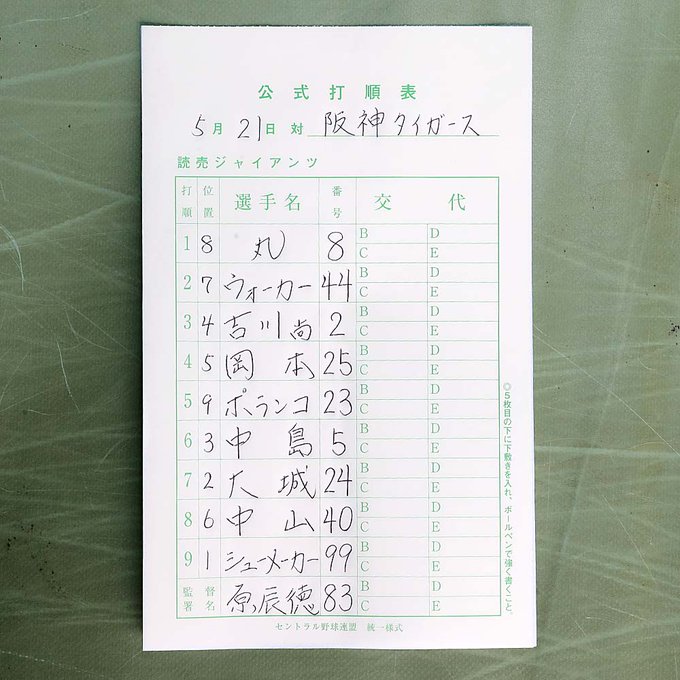 公式打順表
5月21日 対 阪神タイガース
読売ジャイアンツ
打順 位置 選手名 番号 交代
1 8 丸 8 B D C E
2 7 ウォーカー 44 B D C E
3 4 吉川尚 2 B D C E
4 5 岡本 25 B D C E
5 9 ポランコ 23 B D C E
6 3 中島 5 B D C E
7 2 大城 24 B D C E
8 6 中山 40 B D C E
9 1 シューメーカー 99 B D C E
監督署名 原辰徳 83 B D C E
セントラル野球連盟 統一様式
◎5枚目の下に下敷きを入れ、ボールペンで強く書くこと。